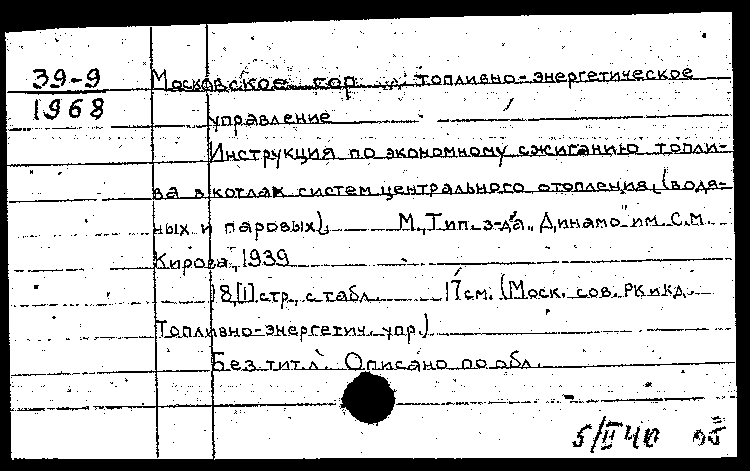 39-9
1968
Московское гор. топливно-энергетическое
управление
Инструкция по экономному сжиганию топли-
ва в котлах систем центрального отопления, (водя-
ных и паровых).    М., Тип. з-да „Динамо" им. С.М.
Кирова, 1939
18,[1] стр., с табл.    17 см. (Моск. сов. РК и КД.
Топливно-энергетич. упр.)
Без тит. л. Описано по обл.
5/II 40